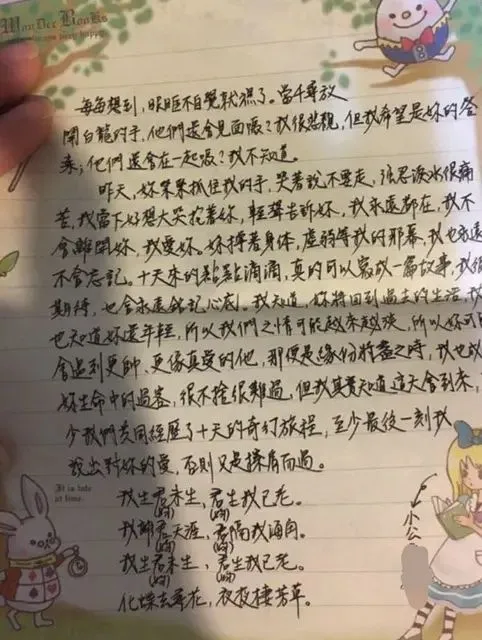 WonDer BooKs
每每想到,眼眶不自覺就濕了。當千尋放
開白龍的手,他們還會見面嗎?我很悲觀,但我希望是妳的答
案;他們還會在一起嗎?我不知道。
昨天,妳緊緊抓住我的手,哭著說不要走,強忍淚水很痛
苦,我當下好想大哭抱著妳,輕聲告訴妳,我永遠都在,我不
會離開妳,我愛妳。妳撐著身體,虛弱等我的那幕,我也永遠
不會忘記。十天來的點點滴滴,真的可以寫成一篇故事,我很
期待,也會永遠銘記心底。我知道,妳將回到過去的生活,我
也知道妳還年輕,所以我們之情可能越來越淡,所以妳可能
會遇到更帥、更像真愛的他,那便是緣份將盡之時,我也成
妳生命中的過客,很不捨很難過,但我其實知道這天會到來,
少我們共同經歷了十天的奇幻旅程,至少最後一刻我
說出對妳的愛,否則又是擦肩而過。
我生君未生,君生我已老。
(妳) (妳)
我離君天涯,君隔我海角。
(妳) (妳)
我生君未生,君生我已老。
(妳) (妳)
化蝶去尋花,夜夜棲芳草。
It is late
at time.
小公